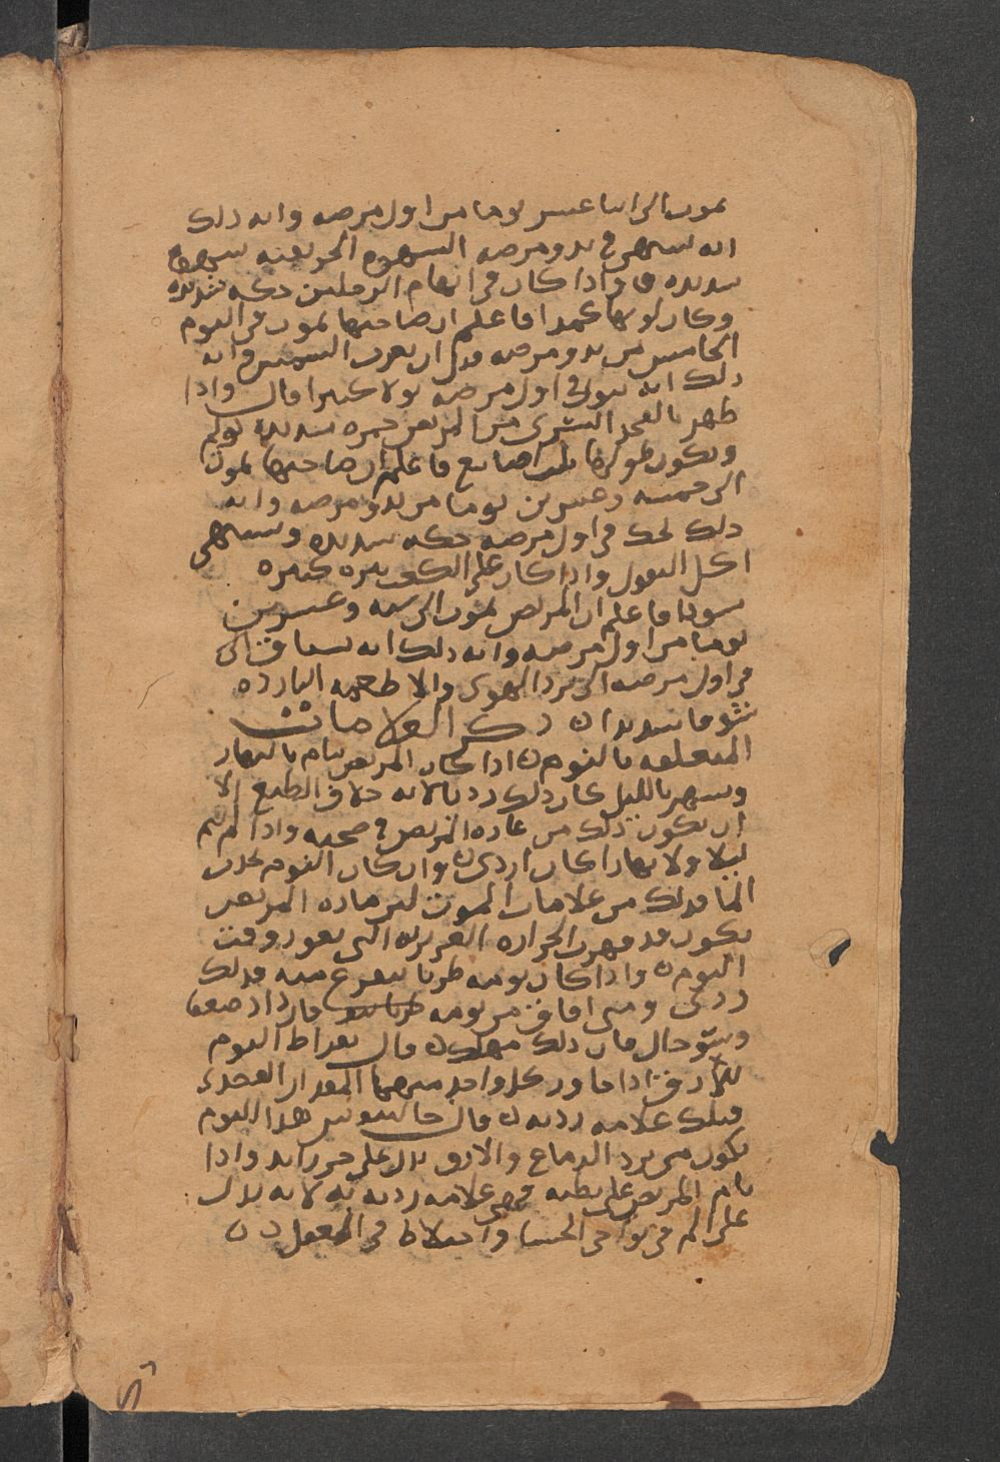 يموت الى اثنا عشر يوما من اول مرضه وايه ذلك
انه يشتهي في بدو مرضه السهوم الحريفه شهوه
شديده واذا كان في ابهام الرجلين حكه شديده
وكان لونها كمدا فاعلم ان صاحبها يموت في اليوم
الخامس من بدو مرضه قبل ان تغرب الشمس وايه
ذلك انه يبول في اول مرضه بولا كثيرا قال واذا
ظهر بالفخد اليسرى من المريض حمره شديده تولم
ويكون طولها ثلث اصابع فاعلم ان صاحبها يموت
الى خمسه وعشرين يوما من بدو مرضه وايه
ذلك يحك في اول مرضه حكه شديده ويشتهي
اكل البقول واذا كان على الكعب بثره كثيره
سودا فاعلم ان المريض يموت الى سته وعشرين
يوما من اول مرضه وايه ذلك انه يشتاق
في اول مرضه الى برد الهوى والاطعمه البارده
شوقا شديدا ذكر العلامات
المتعلقه بالنوم اذا كان المريض ينام بالنهار
ويسهر بالليل كان ذلك رديا لانه خلاف الطبع الا
ان يكون ذلك من عاده المريض في صحته واذا لم ينم
ليلا ولا نهارا كان اردى وان كان النوم يحدث
الما فذلك من علامات الموت لان ماده المرض
تكون قد قهرت الحراره الغريزيه التي تغور وقت
النوم واذا كان نومه طويا يتفزع منه فذلك
ردى ومتى افاق من نومه فازداد ضعفا
وسو حال فان ذلك مهلك قال بقراط النوم
والارق اذا جاوز كل واحد منهما المقدار القصدي
فتلك علامه رديه قال جالينوس هذا النوم
يكون من برد الدماغ والارق يدل على حر زايد واذا
نام المريض على بطنه فهي علامه رديه لانه يدل
على الم في نواحي الحشا واختلاط في العقل